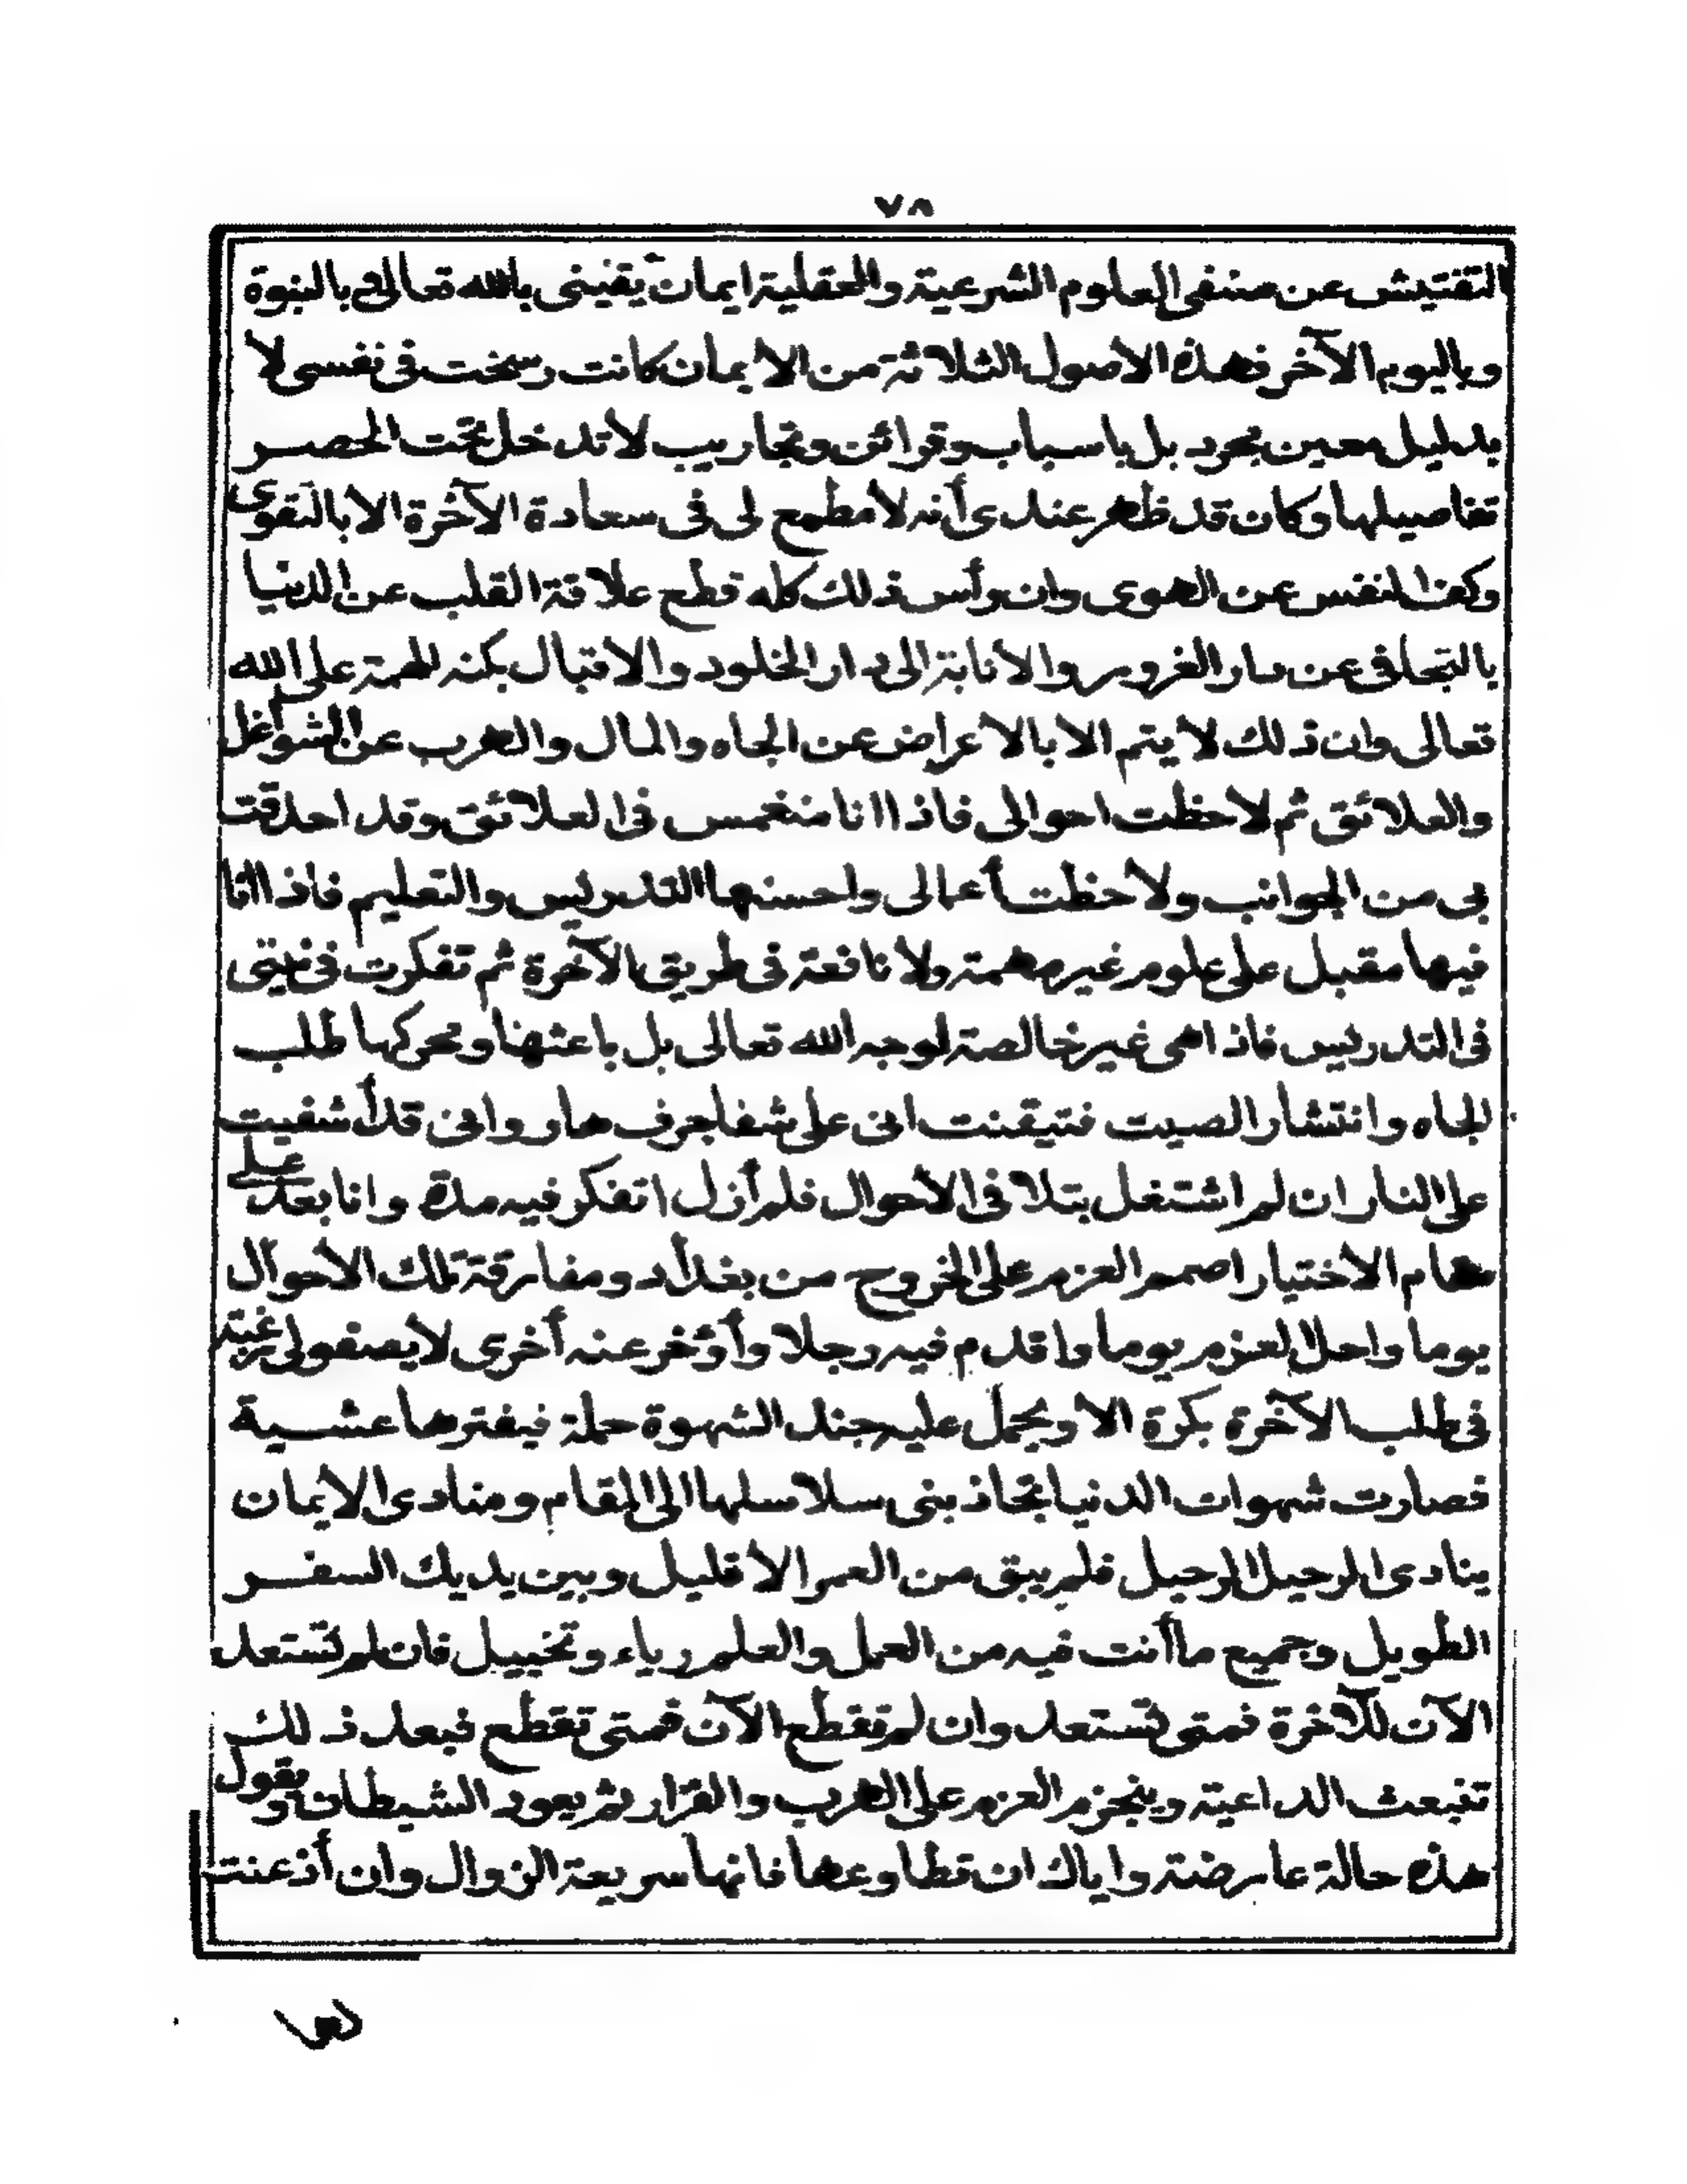 ٧٨
التفتيش عن صنفى العلوم الشرعية والعقلية ايمان يقينى بالله تعالى وبالنبوة
وباليوم الآخر فهذه الاصول الثلاثة من الايمان كانت رسخت فى نفسى لا
بدليل معين مجرد بل باسباب وقرائن وتجاريب لاتدخل تحت الحصر
تفاصيلها وكان قد ظهر عندى أنه لامطمع لى فى سعادة الآخرة الابالتقوى
وكف النفس عن الهوى وان رأس ذلك كله قطع علاقة القلب عن الدنيا
بالتجافى عن دار الغرور والانابة الى دار الخلود والاقبال بكنه الهمة على الله
تعالى وان ذلك لايتم الا بالاعراض عن الجاه والمال والهرب عن الشواغل
والعلائق ثم لاحظت احوالى فاذا انا منغمس فى العلائق وقد احدقت
بى من الجوانب ولاحظت أعمالى واحسنها التدريس والتعليم فاذا انا
فيها مقبل على علوم غير مهمة ولا نافعة فى طريق الآخرة ثم تفكرت فى نيتى
فى التدريس فاذا هى غير خالصة لوجه الله تعالى بل باعثها ومحركها طلب
الجاه وانتشار الصيت فتيقنت انى على شفا جرف هار وانى قد أشفيت
على النار ان لم اشتغل بتلافى الأحوال فلم أزل اتفكر فيه مدة وانا بعد على
مقام الاختيار اصمم العزم على الخروج من بغداد ومفارقة تلك الأحوال
يوما واحل العزم يوما واقدم فيه رجلا وأؤخر عنه أخرى لايصفولى رغبة
فى طلب الآخرة بكرة الا ويحمل عليه جند الشهوة حملة فيفترها عشية
فصارت شهوات الدنيا تجاذبنى سلاسلها الى المقام ومنادى الايمان
ينادى الرحيل الرحيل فلم يبق من العمر الا قليل وبين يديك السفر
الطويل وجميع ما أنت فيه من العمل والعلم رياء وتخييل فان لم تستعد
الآن للآخرة فمتى تستعد وان لم تقطع الآن فمتى تقطع فبعد ذلك
تنبعث الداعية وينجزم العزم على الهرب والفرار ثم يعود الشيطان ويقول
هذه حالة عارضة واياك ان تطاوعها فانها سريعة الزوال وان أذعنت
لها